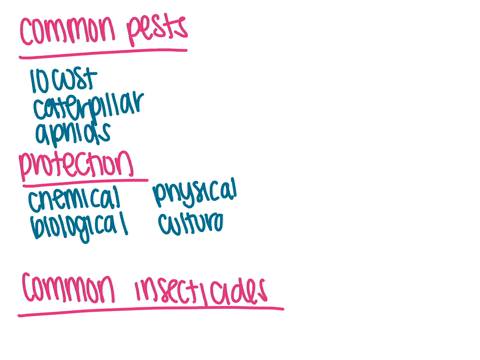 common pests
locust
caterpillar
aphids
protection
chemical physical
biological cultura
common insecticides